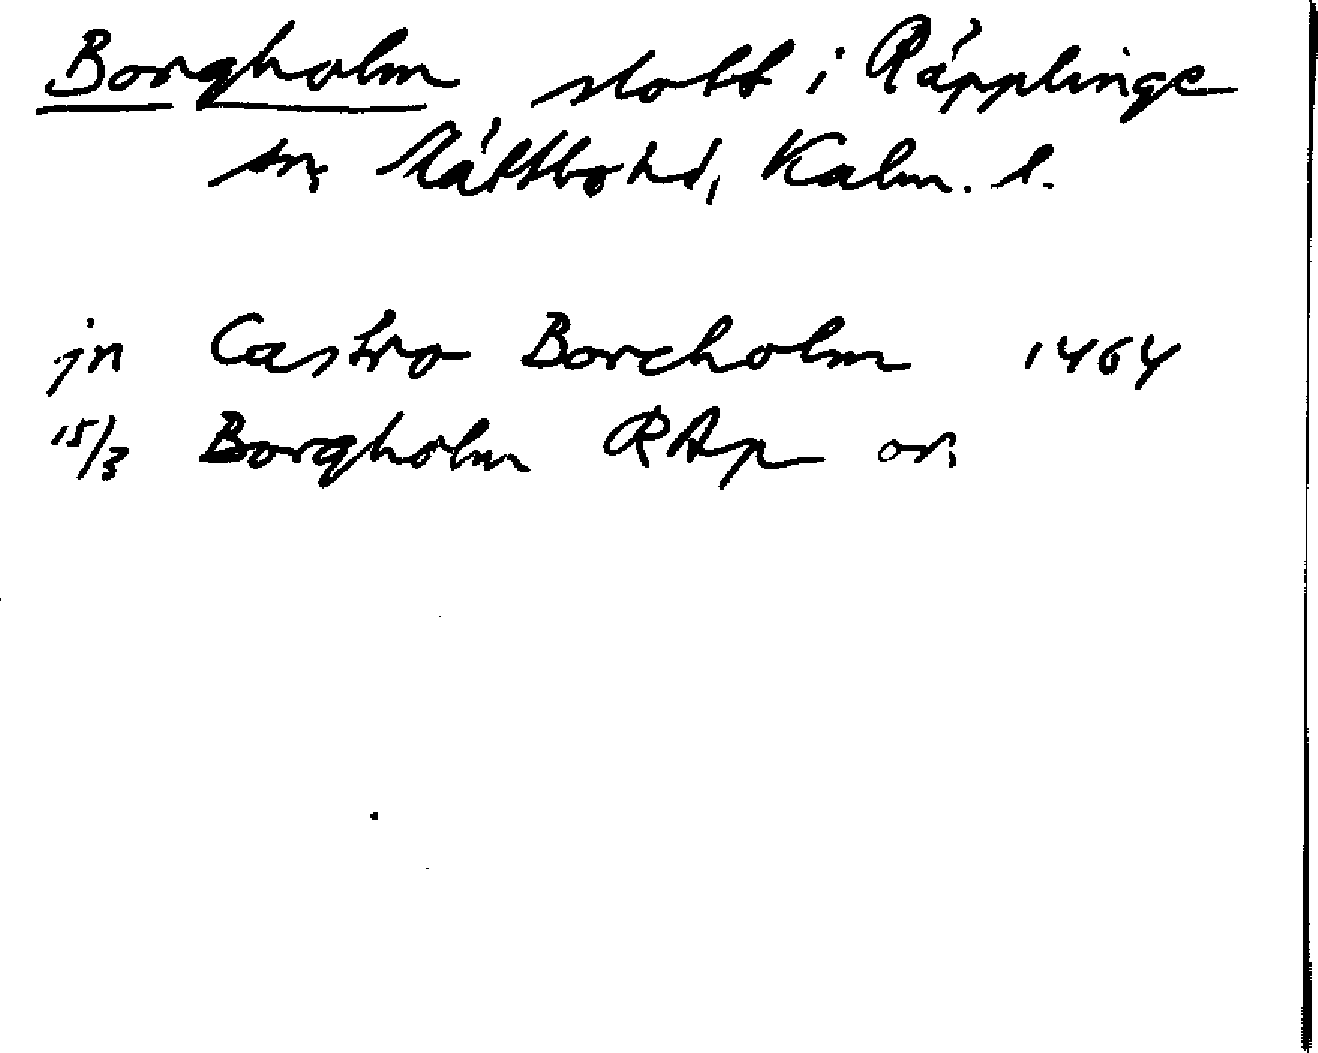 Borgholm slott i Räpplinge
sn, Slättbo hd, Kalm. l.
jn Castro Borcholm 1464
15/3 Borgholm RAp or.